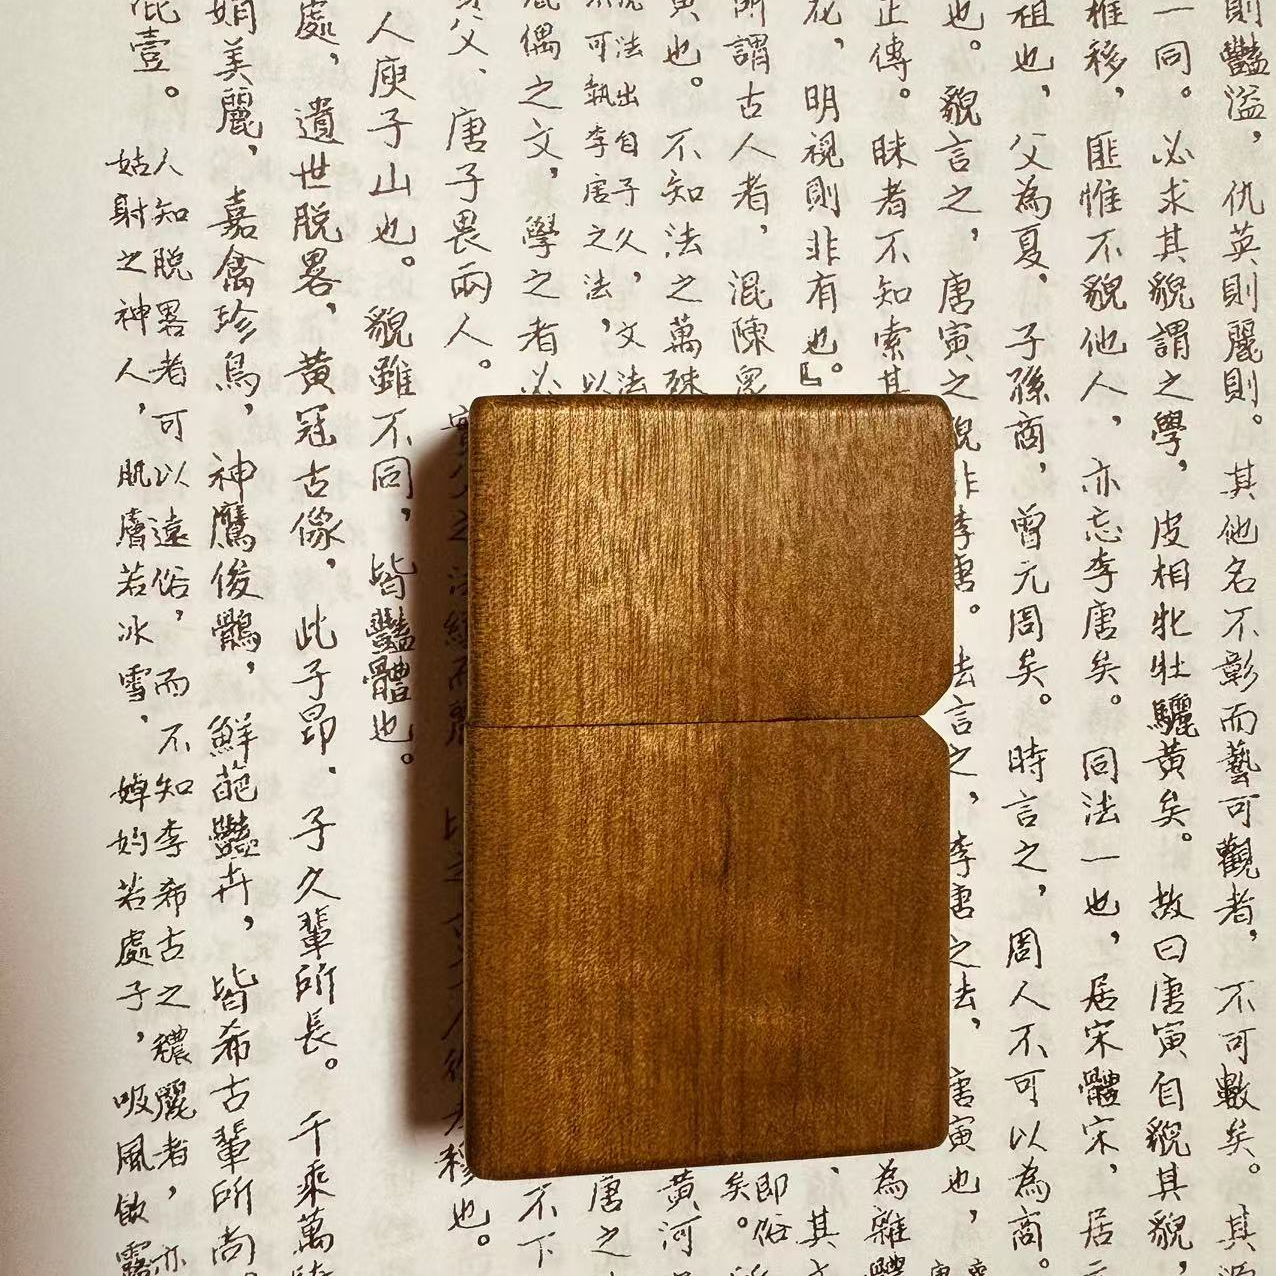 則豔溢，仇英則麗則。其他名不彰而藝可觀者，不可數矣。其源
一同。必求其貌謂之學，皮相牝牡驪黃矣。故曰唐寅自貌其貌，
椎移，匪惟不貌他人，亦忘李唐矣。同法一也，居宋體宋，居元
祖也，父為夏，子孫商，曾元周矣。時言之，周人不可以為商。
也。貌言之，唐寅之貌非李唐。法言之，李唐之法，唐寅也，
正傳。眛者不知索其
為雜體
花，明視則非有也。』
，其
所謂古人者，混陳
即俗
矣。
黃也。不知法之萬殊
黃河
法出自子久，文法
不可執李唐之法，以
唐之
偶之文，學之者必
不下
父、唐子畏兩人。
穆也。
人庾子山也。貌雖不同，皆豔體也。
處，遺世脫畧，黃冠古像，此子昂、子久輩所長。千乘萬騎
娟美麗，嘉禽珍鳥，神鷹俊鶻，鮮葩豔卉，皆希古輩所尚。
人知脫畧者可以遠俗，而不知李希古之穠麗者，亦
姑射之神人，肌膚若冰雪、婥妁若處子，吸風飲露
壹。